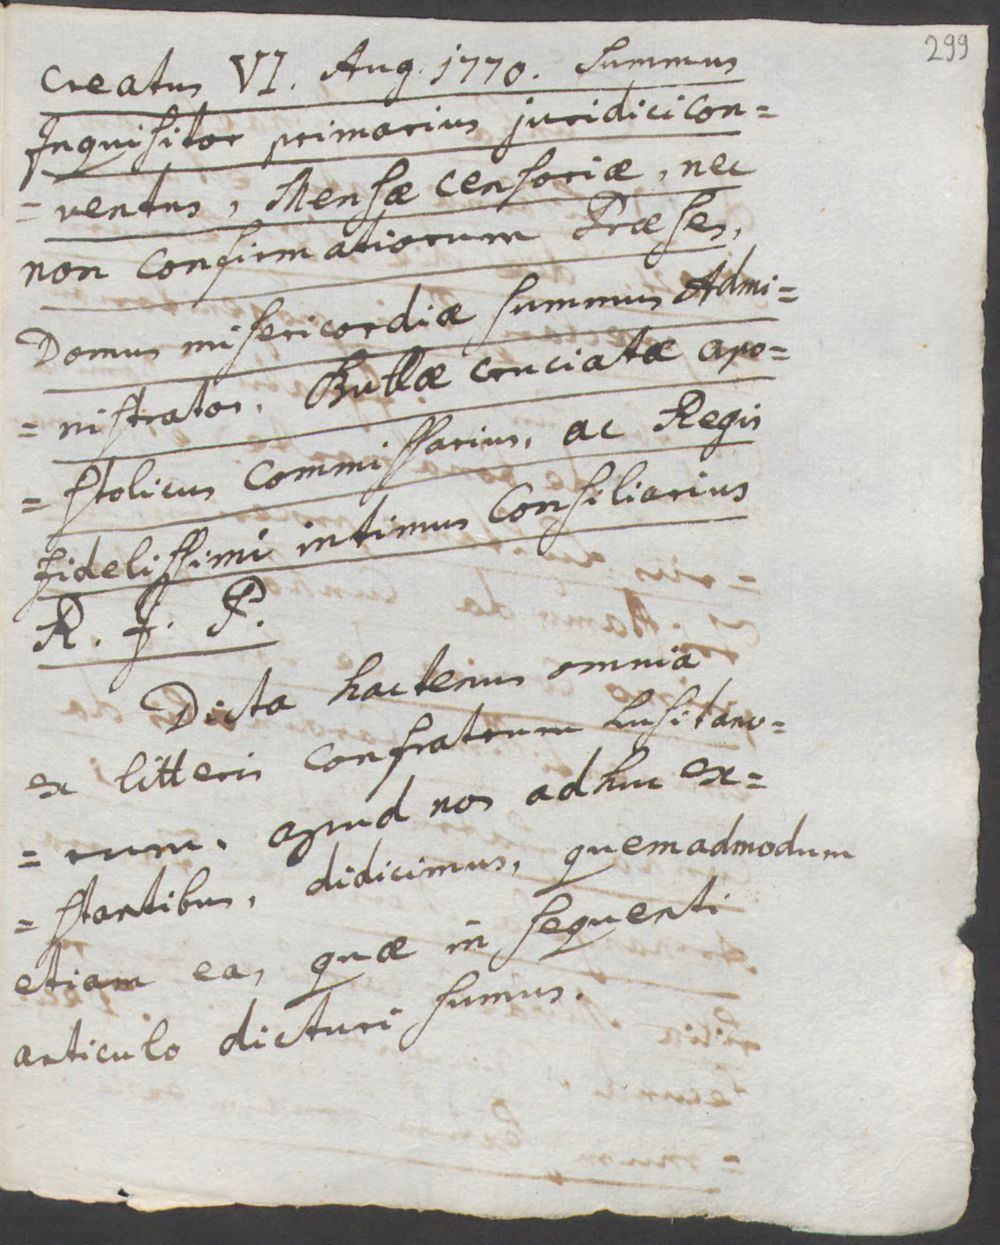 299
creatus VI. Aug. 1770. Summus
Inquisitor primarius juridici con=
=ventus, Mensæ censoriæ, nec
non confirmatiorum Præses,
Domus misericordiæ summus Admi=
=nistrator, Bullæ cruciatæ apo=
=stolicus commissarius, ac Regis
fidelissimi intimus Consiliarius
R. J. P.
Dicta hactenus omnia
ex litteris confratrum Lusitano=
=rum, apud nos adhuc ex=
=stantibus, didicimus, quemadmodum
etiam ea, quæ in sequenti
articulo dicturi sumus.